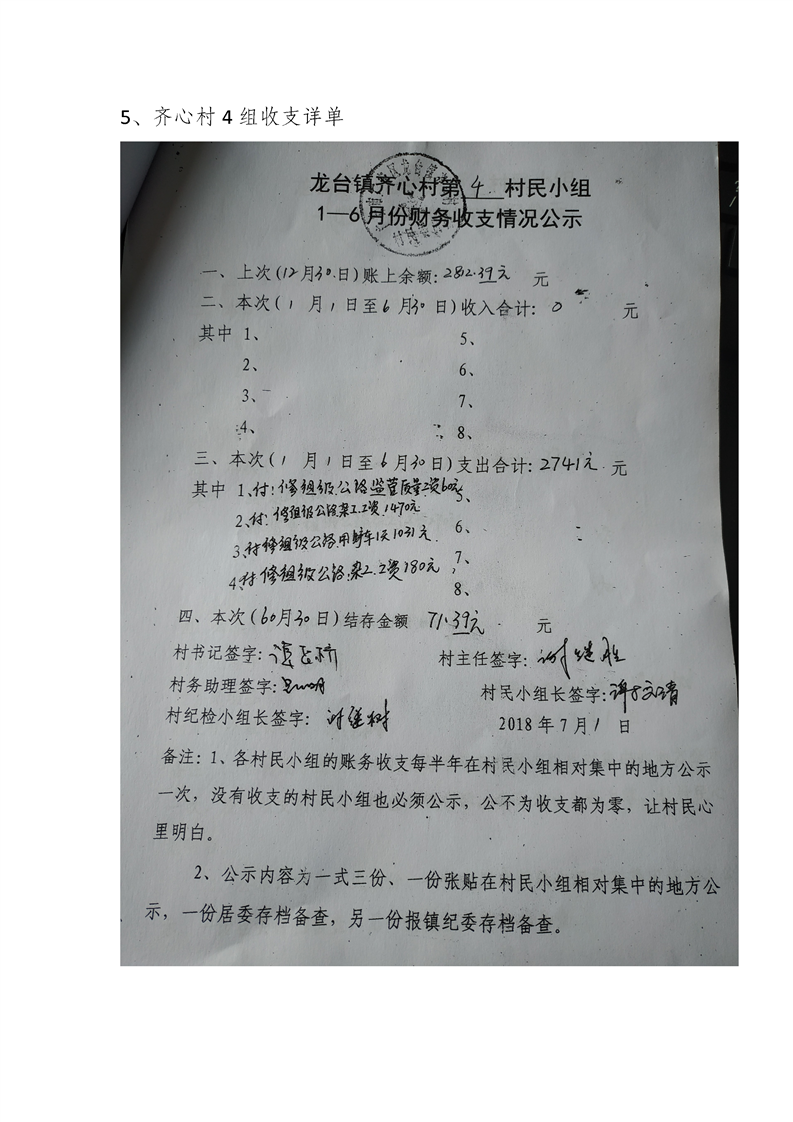 5、齐心村 4 组收支详单
龙台镇齐心村第 4 村民小组
1—6月份财务收支情况公示
一、上次(12月30日)账上余额:282.39元 元
二、本次(1月1日至6月30日)收入合计: 0 元
其中 1、 5、
2、 6、
3、 7、
4、 8、
三、本次(1月1日至6月30日)支出合计:2741元 元
其中 1、付:修组级公路监管质量工资60元 5、
2、付:修组级公路杂工工资1470元
3、付修组级公路用 车1天1031元. 6、
4、付修组级公路杂工工资180元 7、
8、
四、本次(60月30日)结存金额 71.39元 元
村书记签字: 村主任签字:
村务助理签字: 村民小组长签字:
村纪检小组长签字: 2018年7月1日
备注:1、各村民小组的账务收支每半年在村民小组相对集中的地方公示
一次，没有收支的村民小组也必须公示，公不为收支都为零，让村民心
里明白。
2、公示内容为一式三份、一份张贴在村民小组相对集中的地方公
示，一份居委存档备查，另一份报镇纪委存档备查。